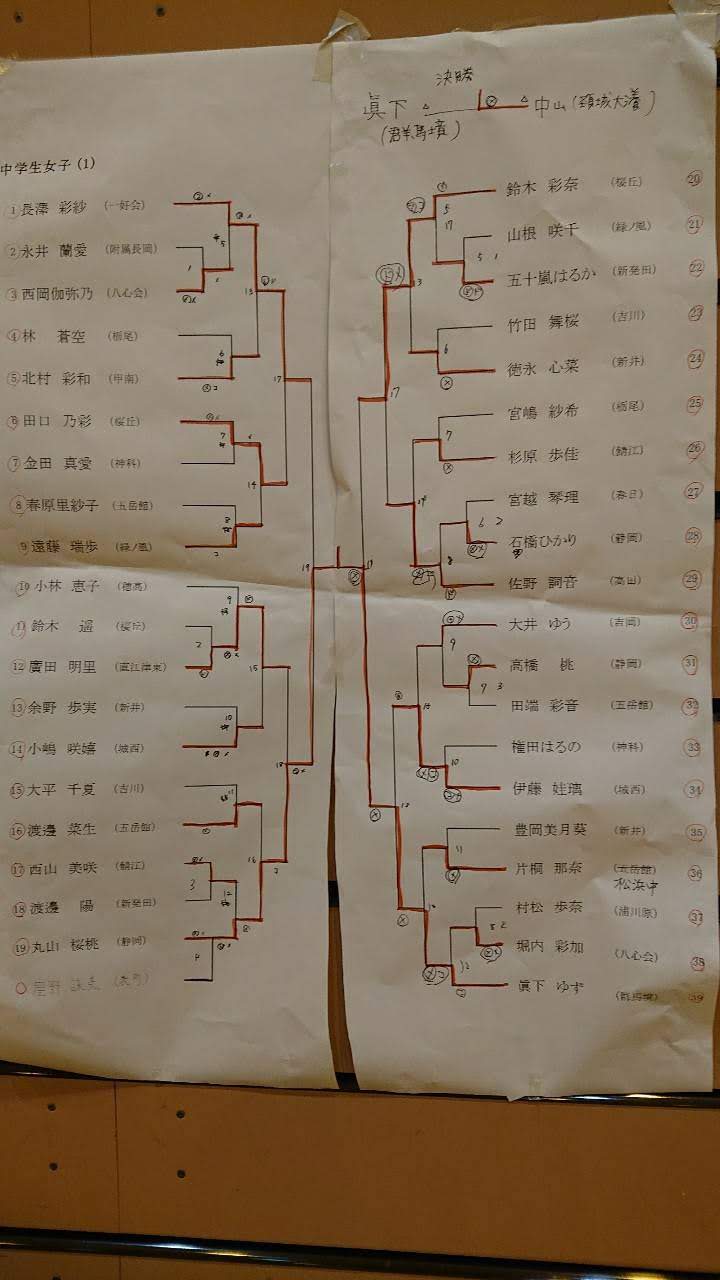 決勝
眞下 中山(頸城大瀁)
(群馬境)
中学生女子(1)
1 長澤 彩紗 (一好会)
2 永井 蘭愛 (附属長岡)
3 西岡伽弥乃 (八心会)
4 林 蒼空 (栃尾)
5 北村 彩和 (甲南)
6 田口 乃彩 (桜丘)
7 金田 真愛 (神科)
8 春原里紗子 (五岳館)
9 遠藤 瑞歩 (緑ノ風)
10 小林 恵子 (穂高)
11 鈴木 遥 (桜丘)
12 廣田 明里 (直江津東)
13 余野 歩実 (新井)
14 小嶋 咲嬉 (城西)
15 大平 千夏 (吉川)
16 渡邊 菜生 (五岳館)
17 西山 美咲 (鯖江)
18 渡邊 陽 (新発田)
19 丸山 桜桃 (静岡)
鈴木 彩奈 (桜丘) 20
山根 咲千 (緑ノ風) 21
五十嵐はるか (新発田) 22
竹田 舞桜 (吉川) 23
徳永 心菜 (新井) 24
宮嶋 紗希 (栃尾) 25
杉原 歩佳 (鯖江) 26
宮越 琴理 (春日) 27
石橋ひかり (静岡) 28
佐野 詞音 (高田) 29
大井 ゆう (吉岡) 30
高橋 桃 (静岡) 31
田端 彩音 (五岳館) 32
権田はるの (神科) 33
伊藤 娃璃 (城西) 34
豊岡美月葵 (新井) 35
片桐 那奈 (五岳館) 36
松浜中
村松 歩奈 (浦川原) 37
堀内 彩加 (八心会) 38
眞下 ゆず (群馬境) 39